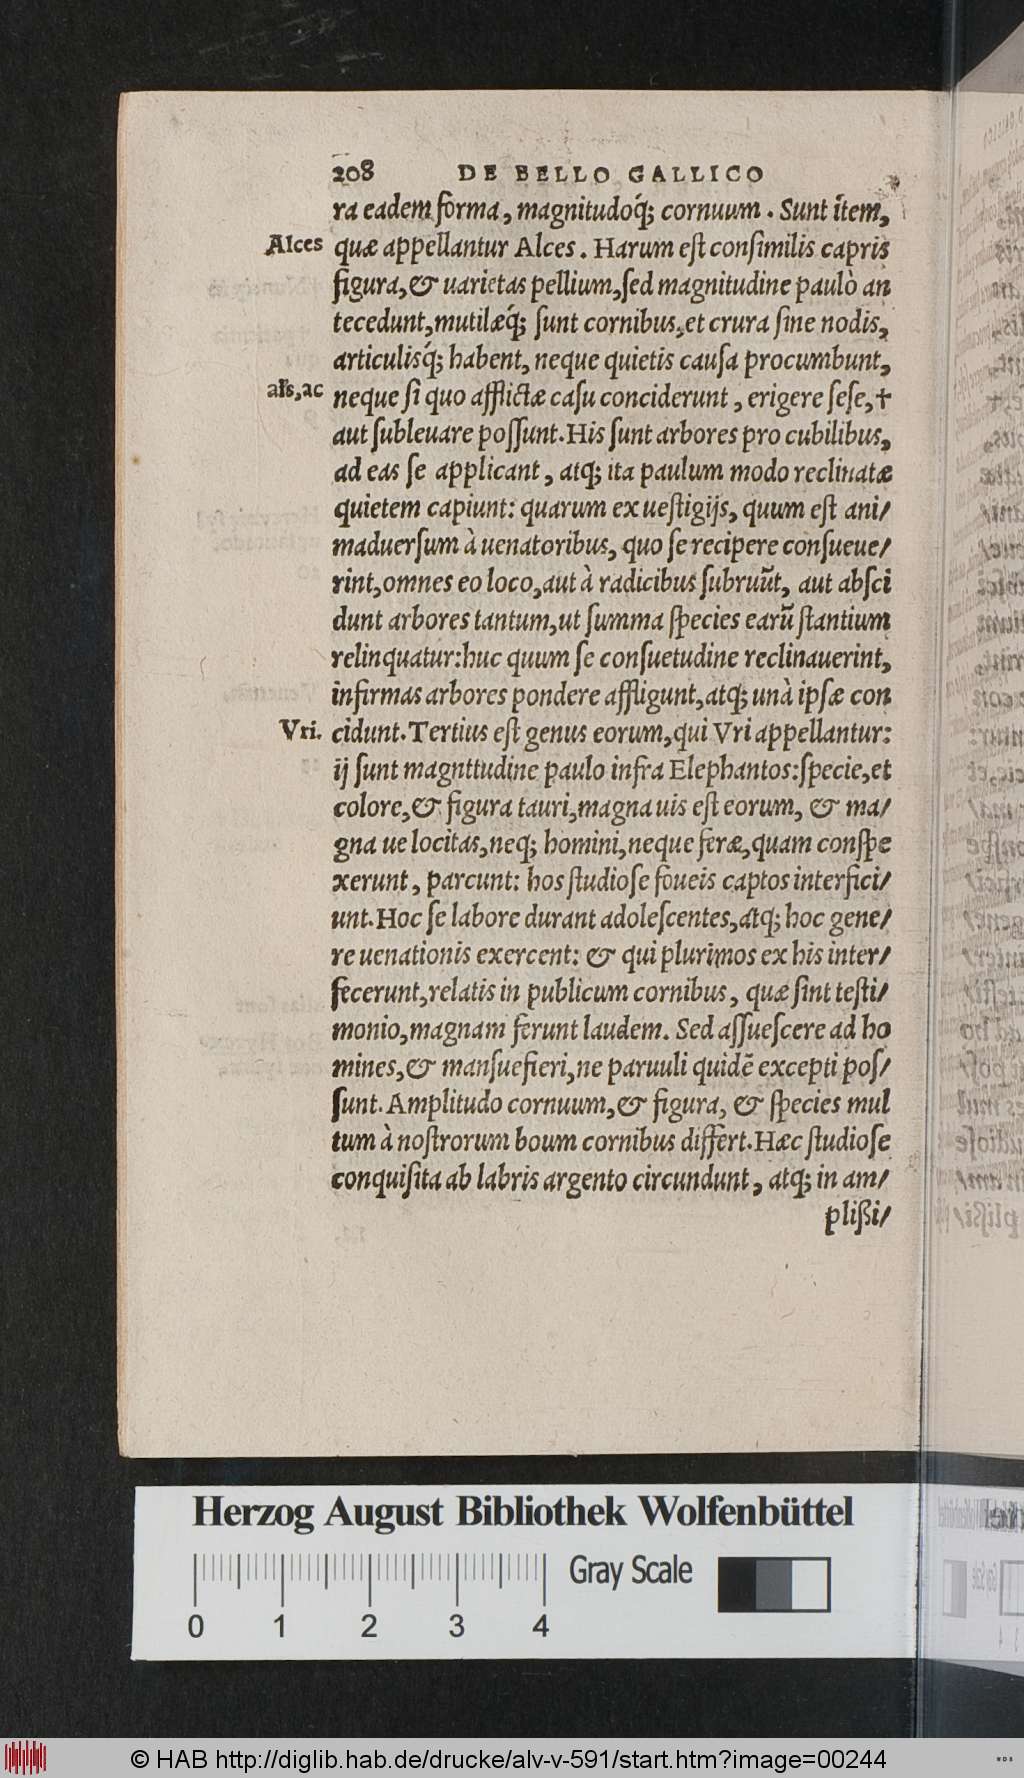 208 DE BELLO GALLICO
ra eadem forma, magnitudoq́; cornuum. Sunt ĩtem,
Alces quæ appellantur Alces. Harum eſt conſimilis capris
figura, & uarietas pellium, ſed magnitudine paulò an
tecedunt, mutilæq́; ſunt cornibus, et crura ſine nodis,
articulisq́; habent, neque quietis cauſa procumbunt,
als, ac neque ſi quo afflictæ caſu conciderunt, erigere ſeſe, †
aut ſubleuare poſſunt. His ſunt arbores pro cubilibus,
ad eas ſe applicant, atq; ita paulum modo reclinatæ
quietem capiunt: quarum ex ueſtigijs, quum eſt ani/
maduerſum à uenatoribus, quo ſe recipere conſueue/
rint, omnes eo loco, aut à radicibus ſubruũt, aut abſci
dunt arbores tantum, ut ſumma ſpecies earũ ſtantium
relinquatur: huc quum ſe conſuetudine reclinauerint,
infirmas arbores pondere affligunt, atq; unà ipſæ con
Vri. cidunt. Tertius eſt genus eorum, qui Vri appellantur:
ij ſunt magnttudine paulo infra Elephantos: ſpecie, et
colore, & figura tauri, magna uis eſt eorum, & ma/
gna ue locitas, neq; homini, neque feræ, quam conſpe
xerunt, parcunt: hos ſtudioſe foueis captos interfici/
unt. Hoc ſe labore durant adoleſcentes, atq; hoc gene/
re uenationis exercent: & qui plurimos ex his inter/
fecerunt, relatis in publicum cornibus, quæ ſint teſti/
monio, magnam ferunt laudem. Sed aſſueſcere ad ho
mines, & manſuefieri, ne paruuli quidẽ excepti poſ/
ſunt. Amplitudo cornuum, & figura, & ſpecies mul
tum à noſtrorum boum cornibus differt. Hæc ſtudioſe
conquiſita ab labris argento circundunt, atq; in am/
plißi/
Herzog August Bibliothek Wolfenbüttel
Gray Scale
0 1 2 3 4
© HAB http://diglib.hab.de/drucke/alv-v-591/start.htm?image=00244